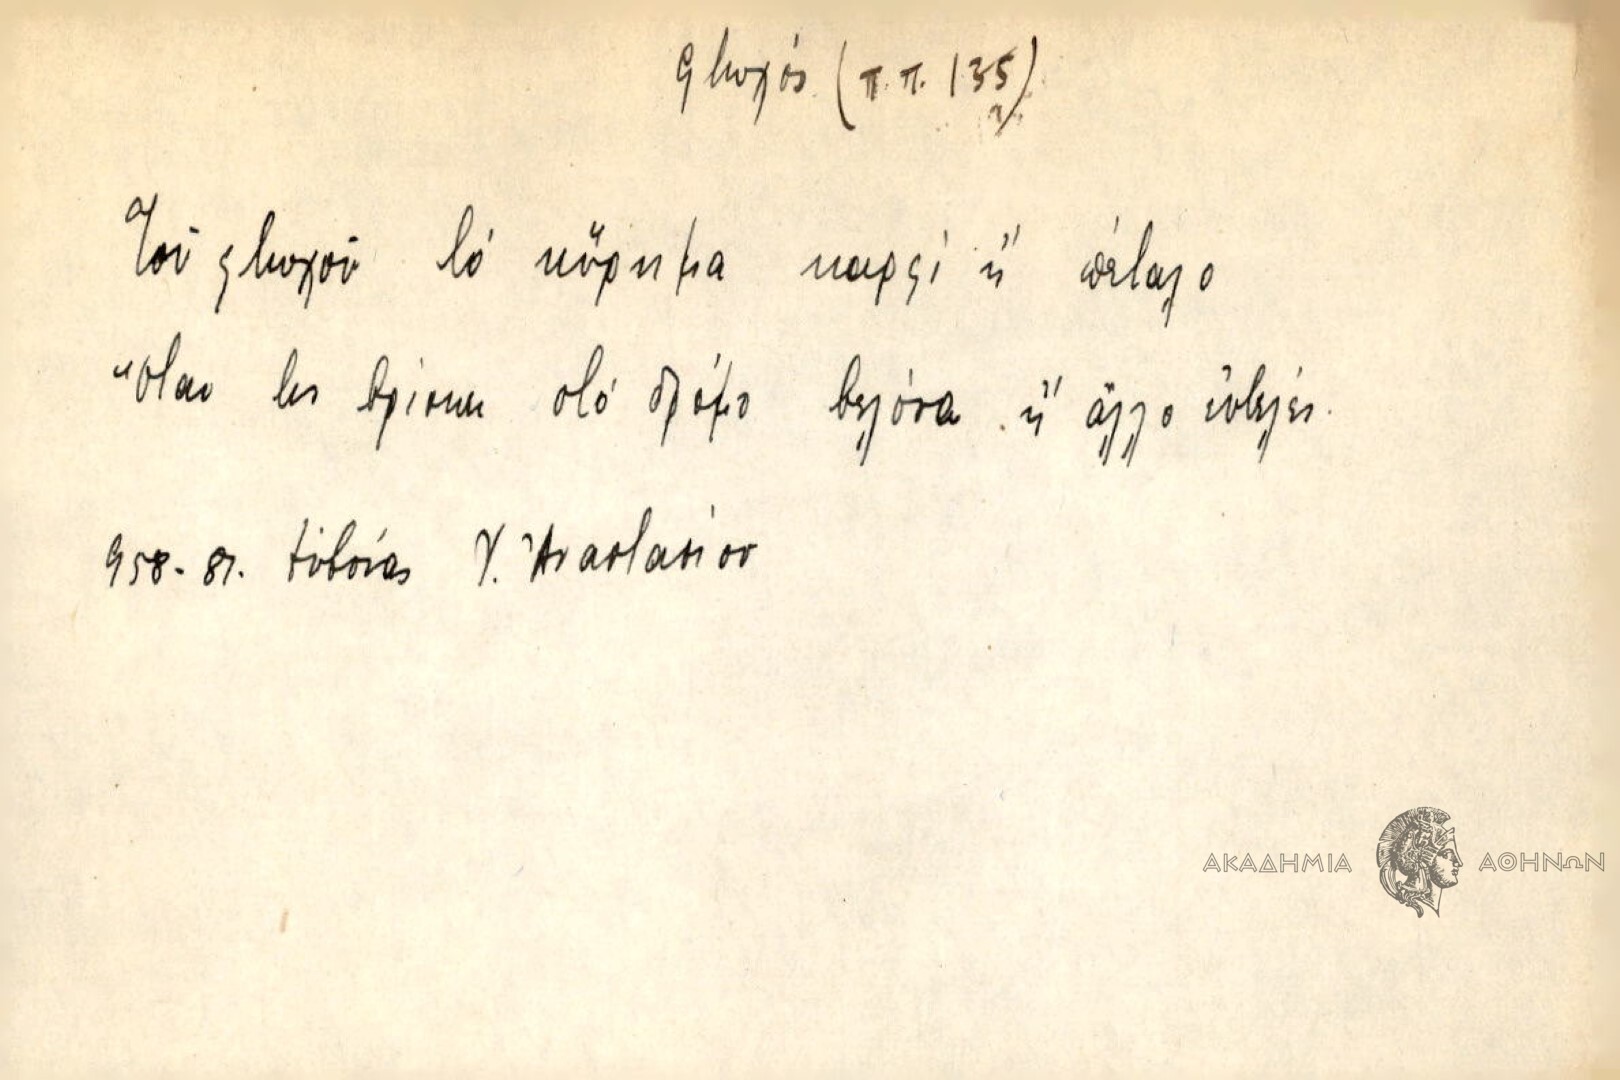 φτωχός (π.π. 135)
Τοῦ φτωχοῦ τό κὔρημα καρφί ἤ πέταλο
Ὅταν τις βρίσκει στό δρόμο βελόνα ἤ ἄλλο εὐτελές.
958-81. Εὐβοίας Γ. Ἀναστασίου
ΑΚΑΔΗΜΙΑ ΑΘΗΝΩΝ